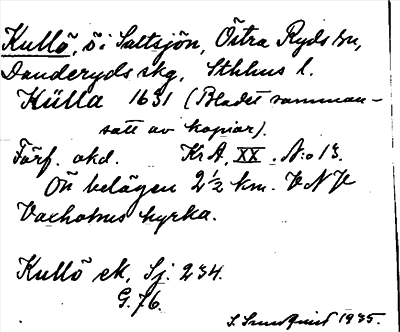 Kullö, ö i Saltsjön, Östra Ryds sn,
Danderyds skg, Sthlms l.
Külla 1631 (Bladet samman-
satt av kopior).
Förf. okd. Kr A, XX. N:o 13.
Ön belägen 2½ km. VNV
Vaxholms kyrka.
Kullö ek, Sj. 234.
G. 76.
1935.